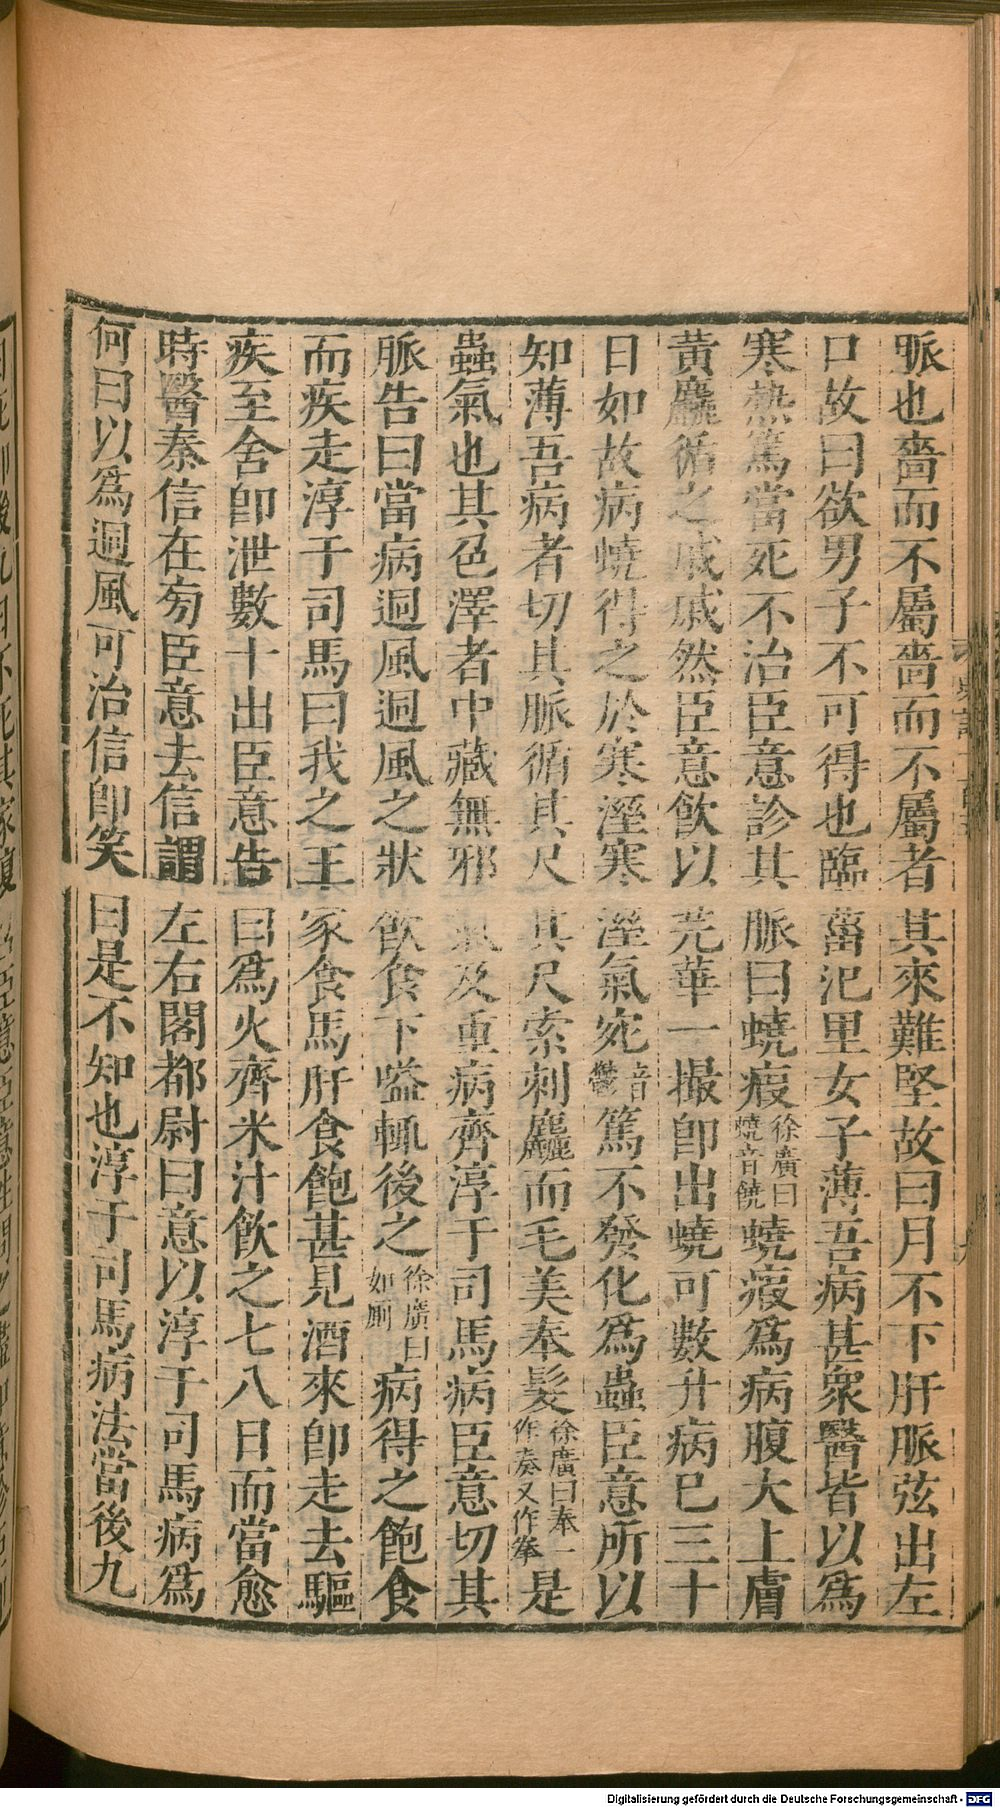 脈也嗇而不屬嗇而不屬者其來難堅故曰月不下肝脈弦出左
口故曰欲男子不可得也臨菑氾里女子薄吾病甚衆醫皆以爲
寒熱篤當死不治臣意診其脈曰蟯瘕徐廣曰蟯音饒蟯瘕爲病腹大上膚
黃麤循之戚戚然臣意飲以芫華一撮卽出蟯可數升病已三十
日如故病蟯得之於寒溼寒溼氣宛音鬱篤不發化爲蟲臣意所以
知薄吾病者切其脈循其尺其尺索刺麤而毛美奉髮徐廣曰奉一作奏又作拳是
蟲氣也其色澤者中藏無邪氣及重病齊淳于司馬病臣意切其
脈告曰當病迵風迵風之狀飲食下嗌輒後之徐廣曰如厠病得之飽食
而疾走淳于司馬曰我之王家食馬肝食飽甚見酒來卽走去驅
疾至舍卽泄數十出臣意告曰爲火齊米汁飲之七八日而當愈
時醫秦信在旁臣意去信謂左右閣都尉曰意以淳于司馬病爲
何曰以爲迵風可治信卽笑曰是不知也淳于司馬病法當後九
Digitalisierung gefördert durch die Deutsche Forschungsgemeinschaft - DFG